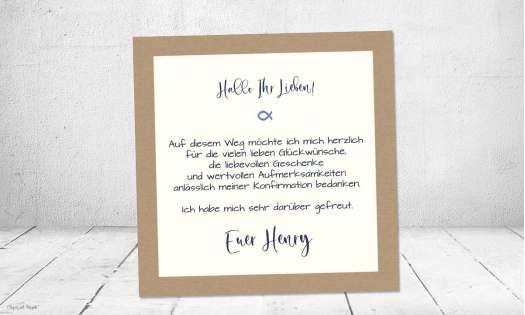 Hallo Ihr Lieben!
Auf diesem Weg möchte ich mich herzlich
für die vielen lieben Glückwünsche,
die liebevollen Geschenke
und wertvollen Aufmerksamkeiten
anlässlich meiner Konfirmation bedanken.
Ich habe mich sehr darüber gefreut.
Euer Henry